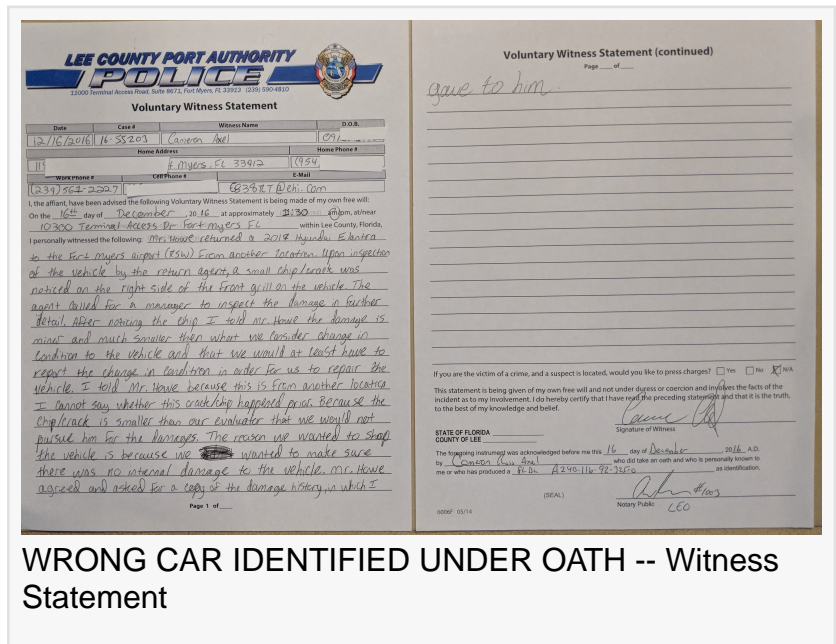 LEE COUNTY PORT AUTHORITY
POLICE
11000 Terminal Access Road, Suite 8671, Fort Myers, FL 33913 (239) 590-4810
Voluntary Witness Statement
Date Case # Witness Name D.O.B.
12/16/2016 16-55203 Cameron Axel
Home Address Home Phone #
Myers, FL 33912 (954
Work Phone # Cell Phone # E-Mail
@ehi.com
I, the affiant, have been advised the following Voluntary Witness Statement is being made of my own free will:
On the 16th day of December, 2016 at approximately am/pm, at/near
10300 Terminal Access Dr Fort myers FL within Lee County, Florida,
I personally witnessed the following: Mr. Howe returned a 2017 Hyundai Elantra
to the Fort myers airport (RSW) From another location. Upon inspection
of the vehicle by the return agent, a small chip/crack was
noticed on the right side of the front grill on the vehicle. The
agent called for a manager to inspect the damage in further
detail. After noticing the chip I told Mr. Howe the damage is
minor and much smaller then what we consider change in
condition to the vehicle and that we would at least have to
report the change in condition in order for us to repair the
vehicle. I told Mr. Howe because this is from another location
I cannot say whether this crack/chip happened prior. Because the
chip/crack is smaller than our evaluator that we would not
pursue him for the damages. The reason we wanted to shop
the vehicle is because we wanted to make sure
there was no internal damage to the vehicle. Mr. Howe
agreed and asked for a copy of the damage history, in which I
Page 1 of
Voluntary Witness Statement (continued)
Page of
gave to him.
If you are the victim of a crime, and a suspect is located, would you like to press charges? Yes No N/A
This statement is being given of my own free will and not under duress or coercion and involves the facts of the
incident as to my involvement. I do hereby certify that I have read the preceding statement and that it is the truth,
to the best of my knowledge and belief.
Signature of Witness
STATE OF FLORIDA
COUNTY OF LEE
The foregoing instrument was acknowledged before me this 16 day of December, 2016 A.D.
by Cameron Axel who did take an oath and who is personally known to
me or who has produced a FL DL as identification,
(SEAL)
#1003
Notary Public LEO
6006F 05/14
WRONG CAR IDENTIFIED UNDER OATH -- Witness
Statement